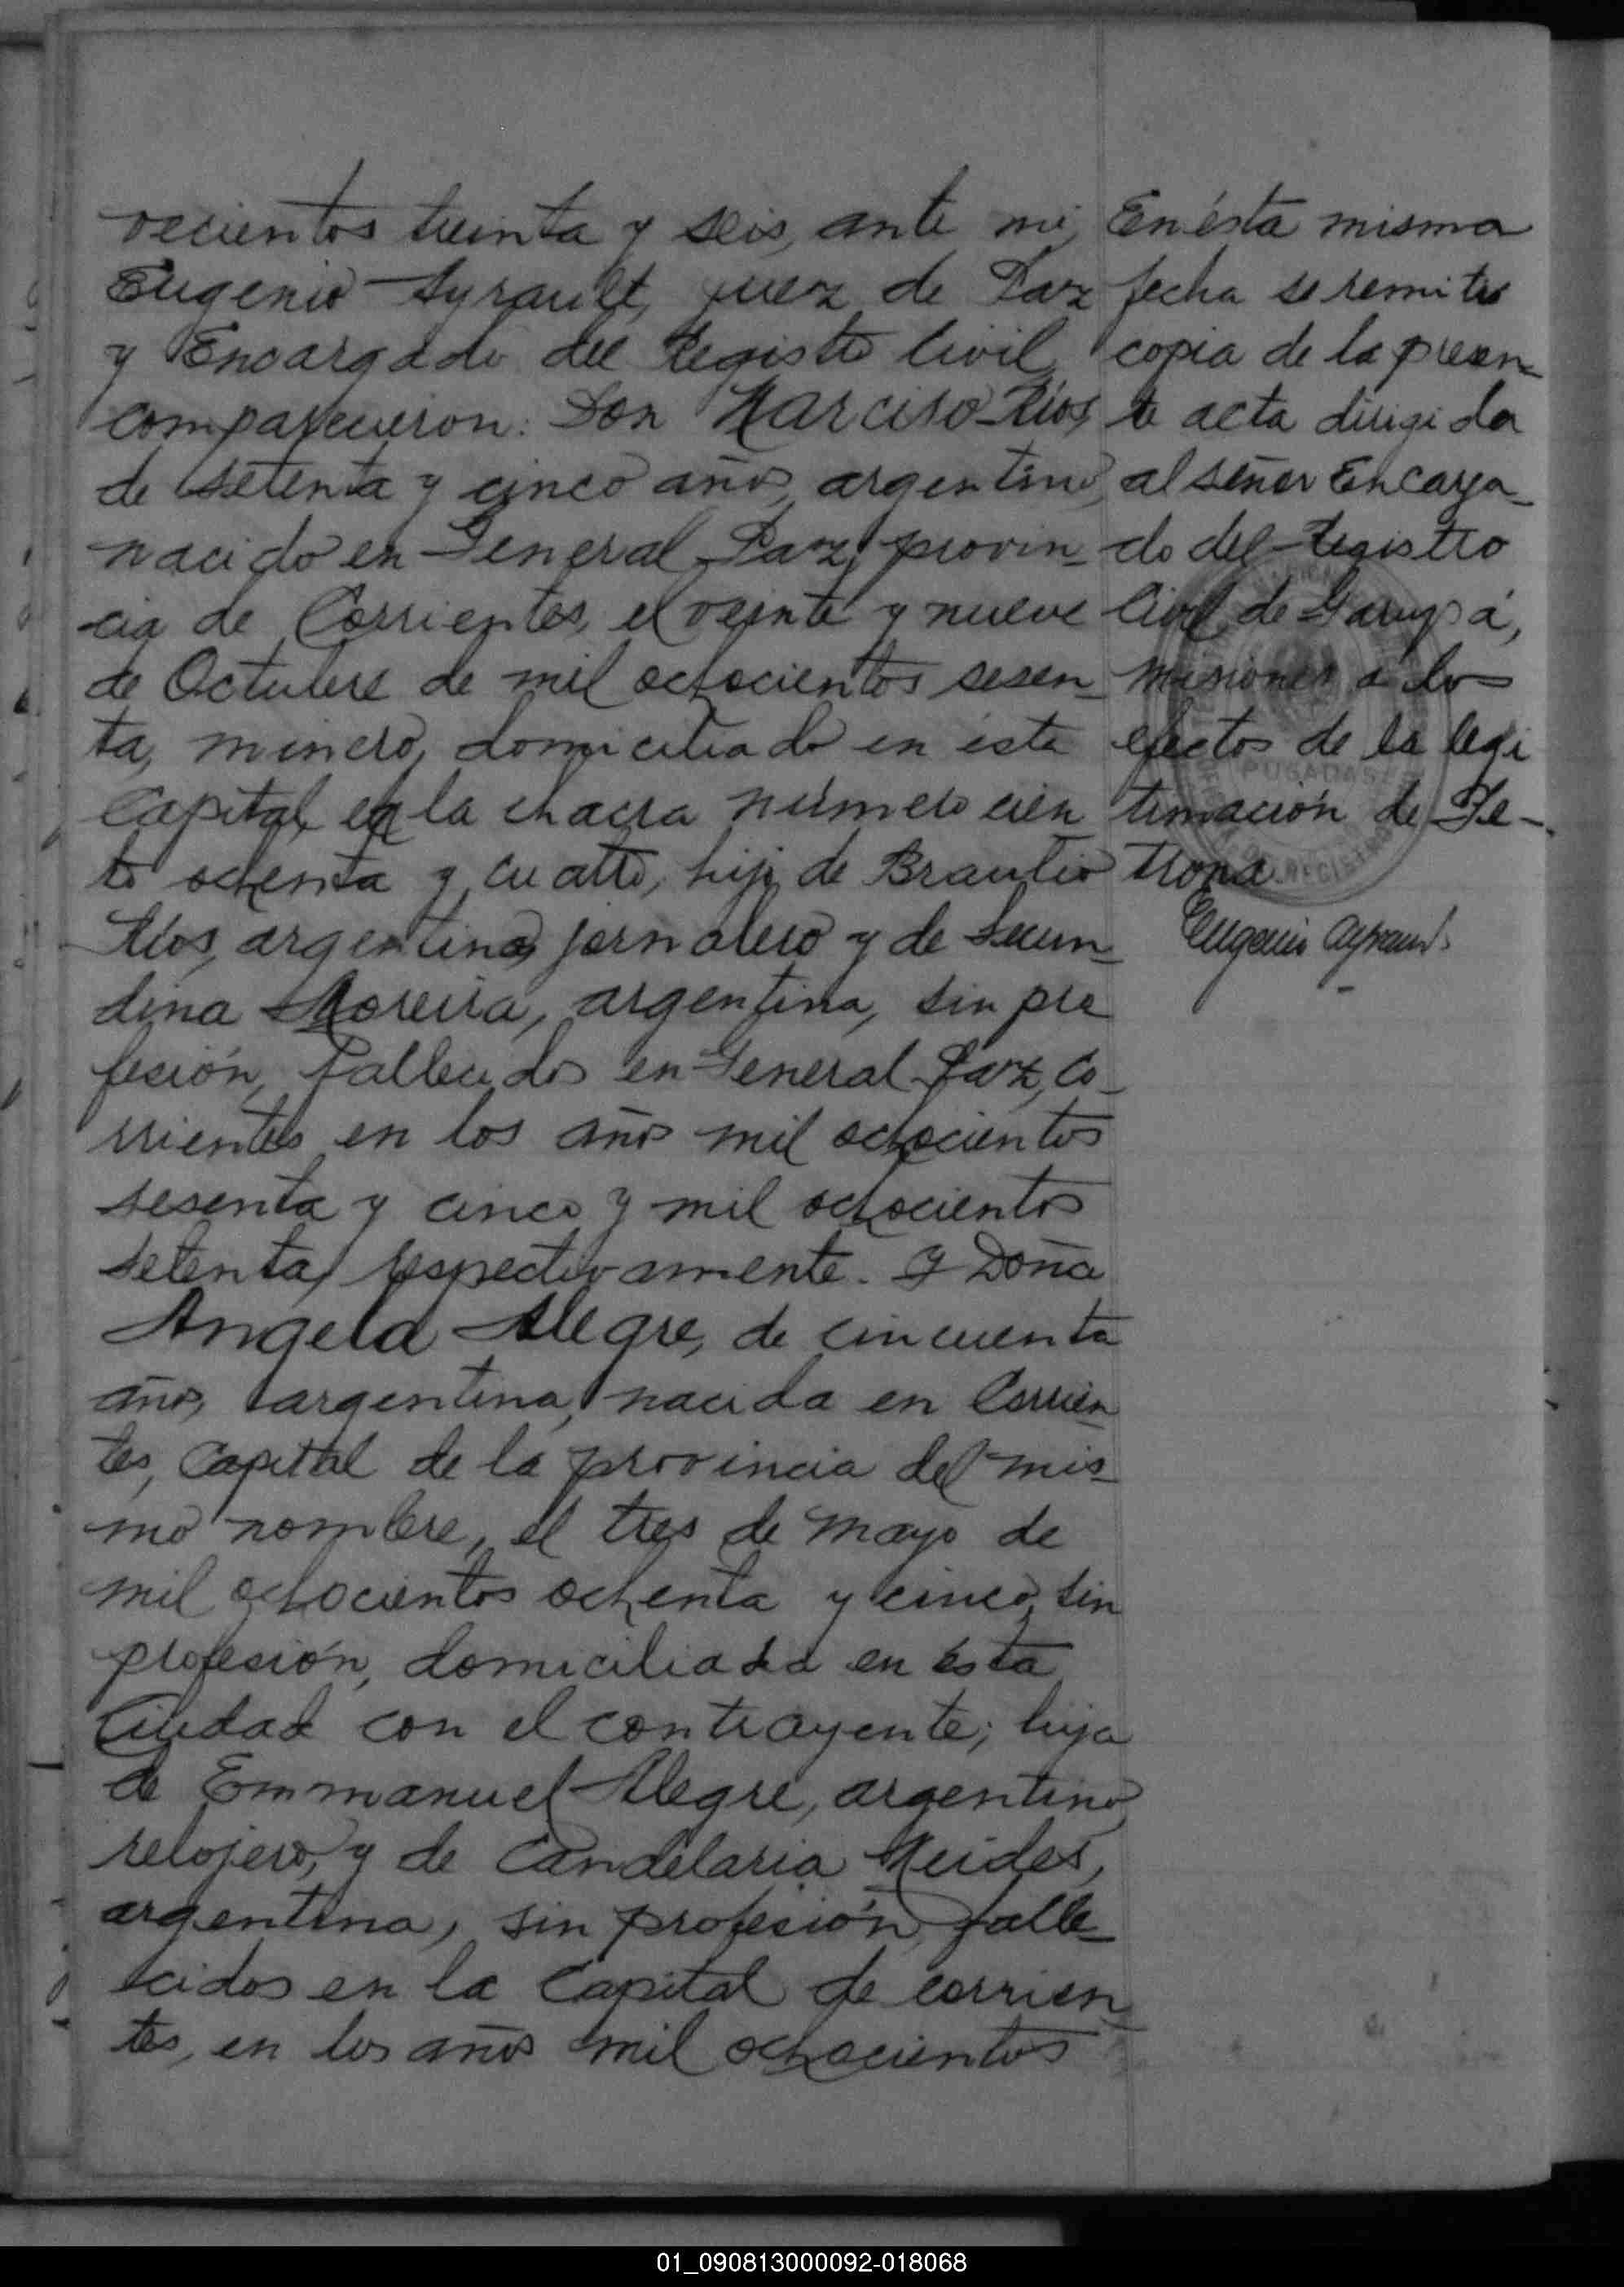 vecientos treinta y seis, ante mi,
Eugenio Ayrault, juez de Paz
y Encargado del Registro Civil,
comparecieron: Don Narciso Ríos,
de setenta y cinco años, argentino,
nacido en General Paz, provin-
cia de Corrientes, el veinte y nueve
de Octubre de mil ochocientos sesen-
ta, minero, domiciliado en ésta
Capital, en la chacra número cien
to ochenta y cuatro, hijo de Braulio
Ríos, argentino, jornalero y de Secun-
dina Moreira, argentina, sin pro
fesión, fallecidos en General Paz, Co-
rrientes en los años mil ochocientos
sesenta y cinco y mil ochocientos
setenta, respectivamente. Y Doña
Angela Alegre, de cincuenta
años, argentina, nacida en Corrien
tes, Capital de la provincia del mis-
mo nombre, el tres de mayo de
mil ochocientos ochenta y cinco, sin
profesión, domiciliada en ésta
Ciudad con el contrayente; hija
de Emmanuel Alegre, argentino,
relojero, y de Candelaria
argentina, sin profesión, falle-
cidos en la Capital de Corrien
tes, en los años mil ochocientos
En ésta misma
fecha se remite
copia de la presen-
te acta dirigida
al señor Encarga-
do del Registro
Civil de Garupá,
Misiones a los
efectos de la legi
timación de Pe-
trona
Eugenio Ayrault
POSADAS
01_090813000092-018068